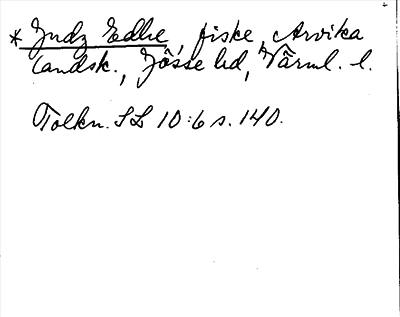 * Jndz Edhe, fiske, Arvika
landsk., Jösse hd, Värml. l.
Tolkn. SL 10:6 s. 140.